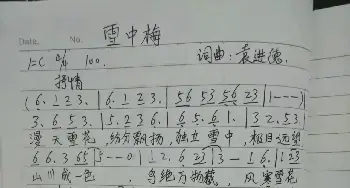 Date. No. 雪中梅
1=C 4/4 100. 词曲:袁进德.
抒情
(6. 1 2 3. | 6. 1 2 3. | 56 53 56 23 | 1---)
3. 6. 5 3. | 5. 2 3 6. | 6. 5. 6 1. | 3 2. 5 3.
漫天雪花,纷分飘扬,独立雪中,极目远望
6 6. 3 65 | 3--0 | 1 2. 6 23 | 3 - 1 6. | 1 23
山川成一色, 绝万物藏, 风寒雪花